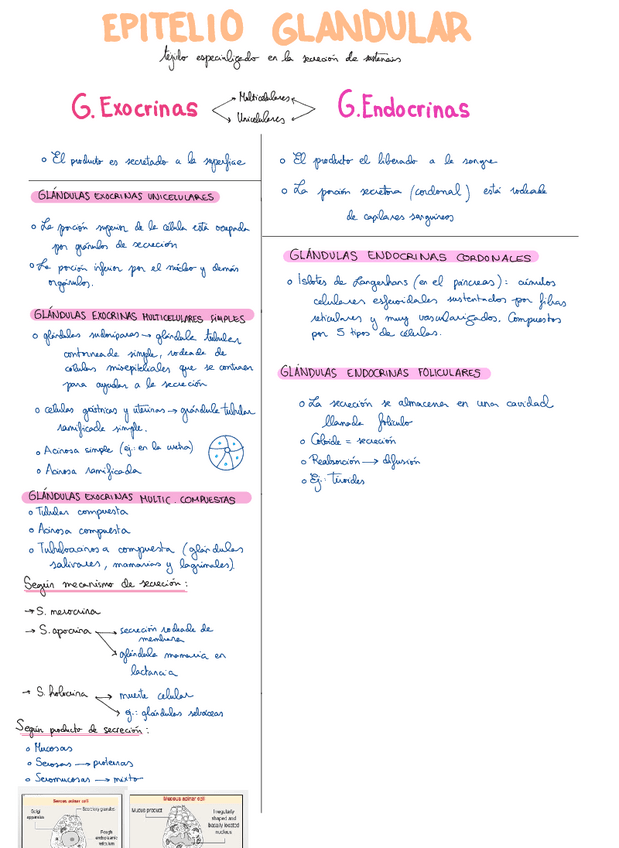 EPITELIO GLANDULAR
tejido especializado en la secreción de sustancias
G. Exocrinas
Multicelulares
Unicelulares
G. Endocrinas
o El producto es secretado a la superficie
GLÁNDULAS EXOCRINAS UNICELULARES
o La porción superior de la célula está ocupada
por gránulos de secreción
o La porción inferior por el núcleo y demás
orgánulos.
GLÁNDULAS EXOCRINAS MULTICELULARES SIMPLES
o glándulas sudoríparas → glándula tubular
contorneada simple, rodeada de
células mioepiteliales que se contraen
para ayudar a la secreción
o células gástricas y uterinas → glándula tubular
ramificada simple.
o Acinosa simple (ej: en la uretra)
o Acinosa ramificada
GLÁNDULAS EXOCRINAS MULTIC. COMPUESTAS
o Tubular compuesta
o Acinosa compuesta
o Tubuloacinosa compuesta (glándulas
salivares, mamarias y lagrimales)
Según mecanismo de secreción:
→ S. merocrina
→ S. apocrina
secreción rodeada de
membrana
glándula mamaria en
lactancia
→ S. holocrina
muerte celular
ej.: glándulas sebáceas
Según producto de secreción:
o Mucosas
o Serosas → proteínas
o Seromucosas → mixto
Serous acinar cell
Golgi
apparatus
Secretory granules
Rough
endoplasmic
reticulum
Mucous acinar cell
Mucous product
Irregularly
shaped and
basally located
nucleus
o El producto el liberado a la sangre
o La porción secretora (cordonal) está rodeada
de capilares sanguíneos
GLÁNDULAS ENDOCRINAS CORDONALES
o Islotes de Langerhans (en el páncreas): cúmulos
celulares esferoidales sustentados por fibras
reticulares y muy vascularizados. Compuestos
por 5 tipos de células.
GLÁNDULAS ENDOCRINAS FOLICULARES
o La secreción se almacena en una cavidad
llamada folículo
o Coloide = secreción
o Reabsorción → difusión
o Ej.: Tiroides